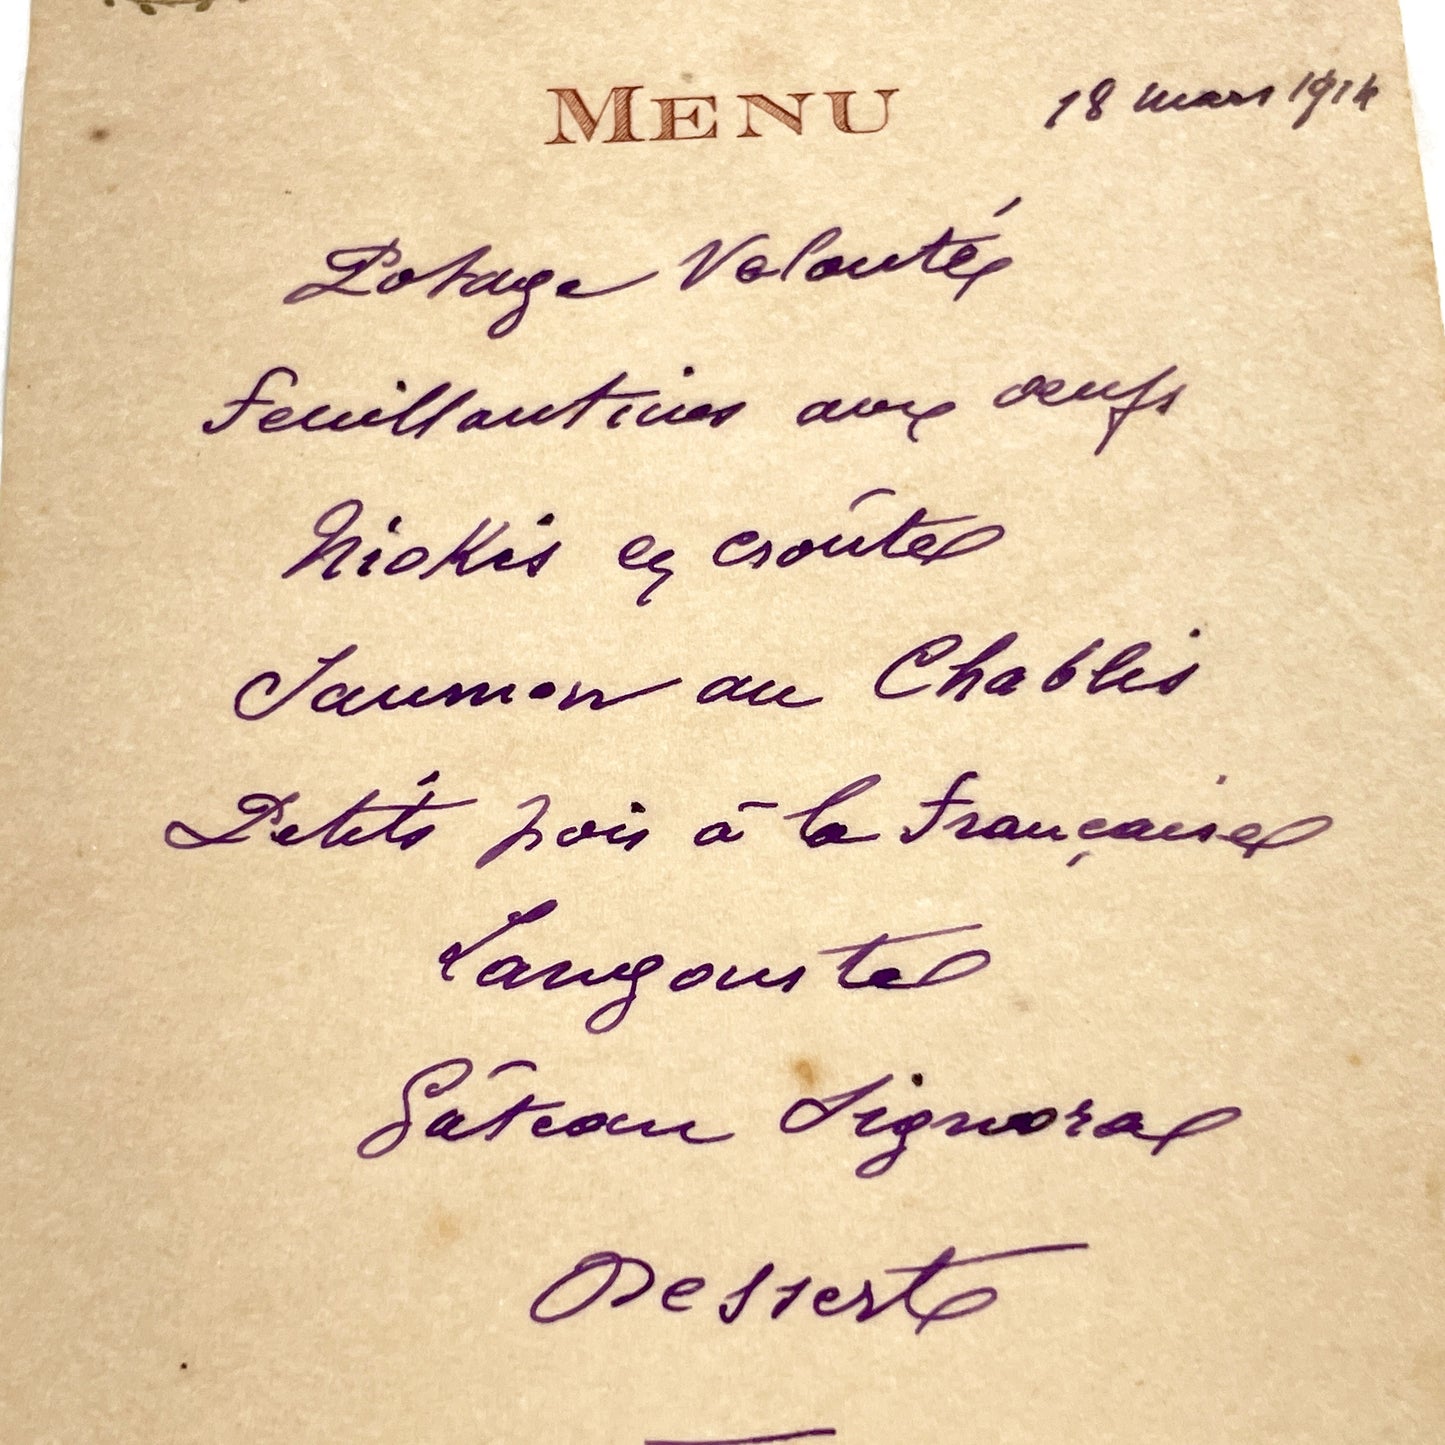 MENU
18 mars 1914
Potage Velouté
Feuillantines aux oeufs
Niokis en croûte
Saumon au Chablis
Petits pois à la Française
Langouste
Gâteau Signora
Dessert